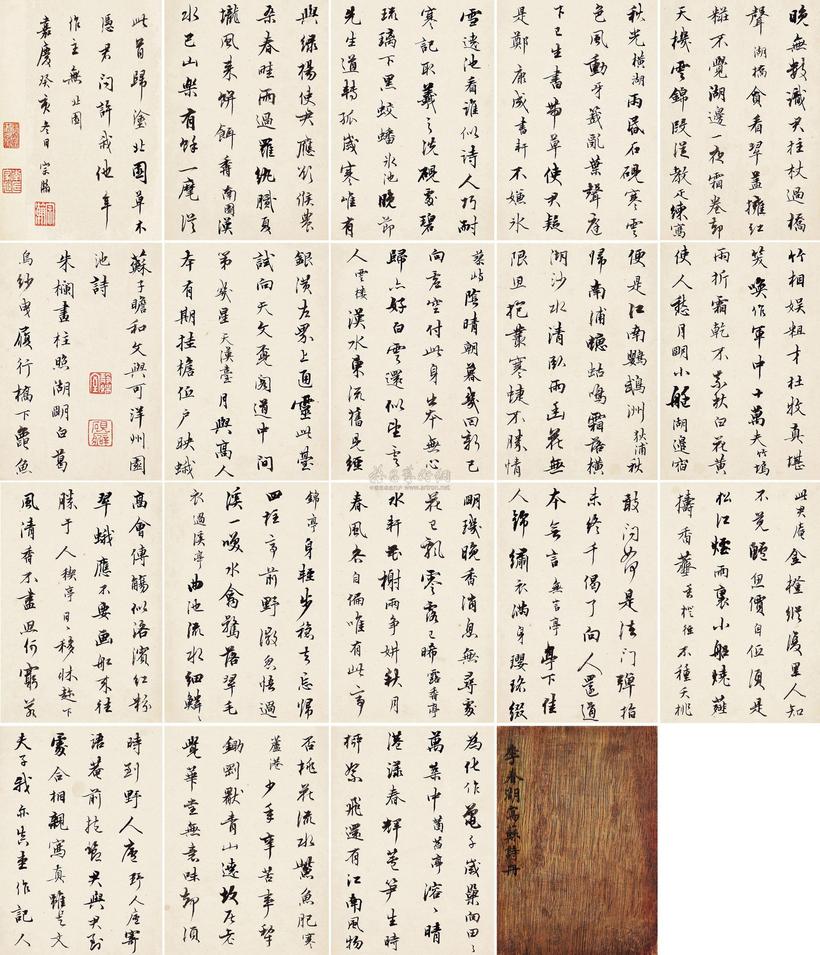 晚無數識君拄杖過橋
聲湖橋貪看翠蓋擁紅
粧不覺湖邊一夜霜卷卻
天機雲錦段從教匹練寫
秋光橫湖雨昬石硯寒雲
色風動牙籤亂葉聲庭
下已生書帶草使君疑
是鄭康成書軒不嫌氷
雪遶池看誰似詩人巧耐
寒記取羲之洗硯處碧
琉璃下黑蛟蟠氷池晚節
先生道轉孤歲寒唯有
與綠楊使君應欲候農
桑春畦雨過羅紈膩夏
壠風來餅餌香南園漢
水巴山樂有餘一麾從
此首歸塗北園草木
憑君問許我他年
作主無北園
嘉慶癸亥冬日宗瀚
竹相娛粗才杜牧真堪
笑喚作軍中十萬夫竹塢
雨折霜乾不耐秋白花黃葉
使人愁月明小艇湖邊宿
便是江南鸚鵡洲荻浦秋
歸南浦蟪蛄鳴霜落橫
湖沙水清臥雨幽花無
限思抱叢寒蝶不勝情
蓼嶼陰晴朝暮幾回新已
向虛空付此身出本無心
歸亦好白雲還似望雲
人雲樓漢水東流舊見經
銀潢左界上通靈此臺
試向天文覓閣道中間
第幾星天漢臺月與高人
本有期挂檐低戶映蛾
蘇子瞻和文與可洋州園
池詩
朱欄畫柱照湖明白葛
烏紗曳履行橋下龜魚
此君庵金橙縱復里人知
不見鱸魚價自低須是
松江煙雨裏小船燒薤
擣香虀金橙徑不種夭桃
敢問如何是法門彈指
未終千偈了向人還道
本無言無言亭亭下佳
人錦繡衣滿身瓔珞綴
明璣晚香消息無尋處
花已飄零露已晞露香亭
水軒花榭兩爭妍秋月
春風各自偏唯有此亭
錦亭身輕步穩去忘歸
四柱亭前野彴微忽悟過
溪一噱水禽驚落翠毛
衣過溪亭曲池流水細鱗鱗
高會傳觴似洛濱紅粉
翠蛾應不要畫船來往
勝于人禊亭日日移牀趁下
風清香不盡思何窮若
李春湖寫蘇詩冊
為化作龜千歲巢向田田
萬葉中菡萏亭溶溶晴
港漾春輝蘆筍生時
柳絮飛還有江南風物
否桃花流水鱖魚肥寒
蘆港少年辛苦事犂
鋤剛厭青山遶故居老
覺華堂無意味卻須
時到野人廬野人廬寄
語菴前抱節君與君到
處合相親寫真雖是文
夫子我亦真堂作記人